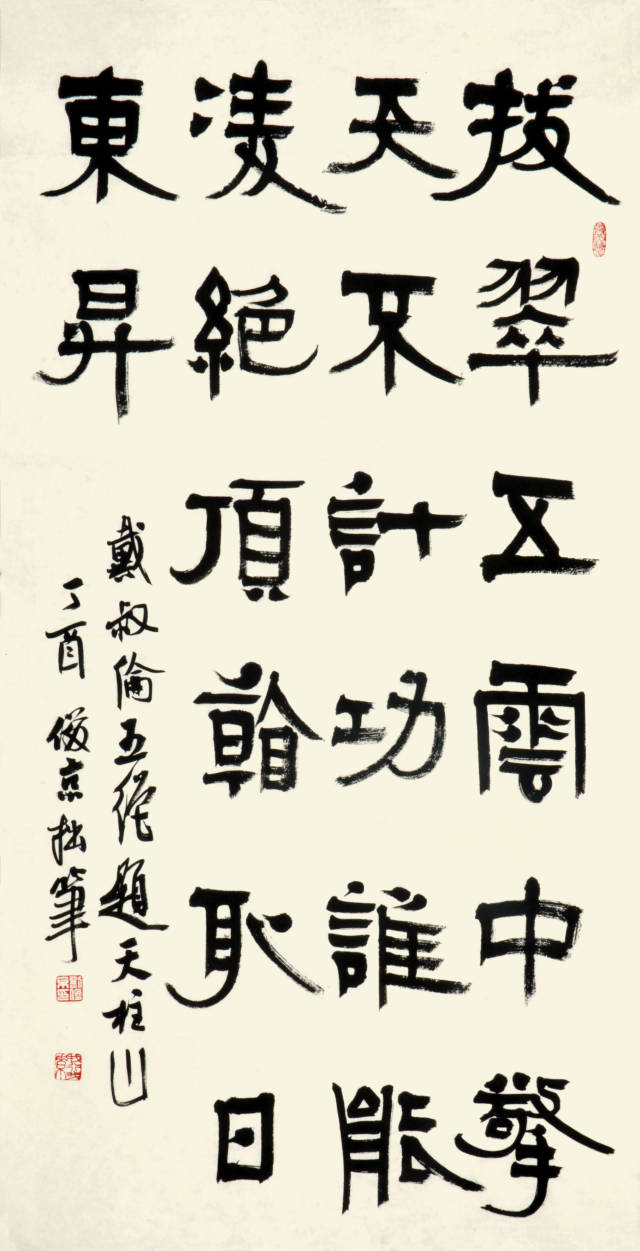 拔翠五雲中擎
天不計功誰能
凌絕頂看取日
東昇
戴叔倫五絕題天柱山
丁酉 京拙筆